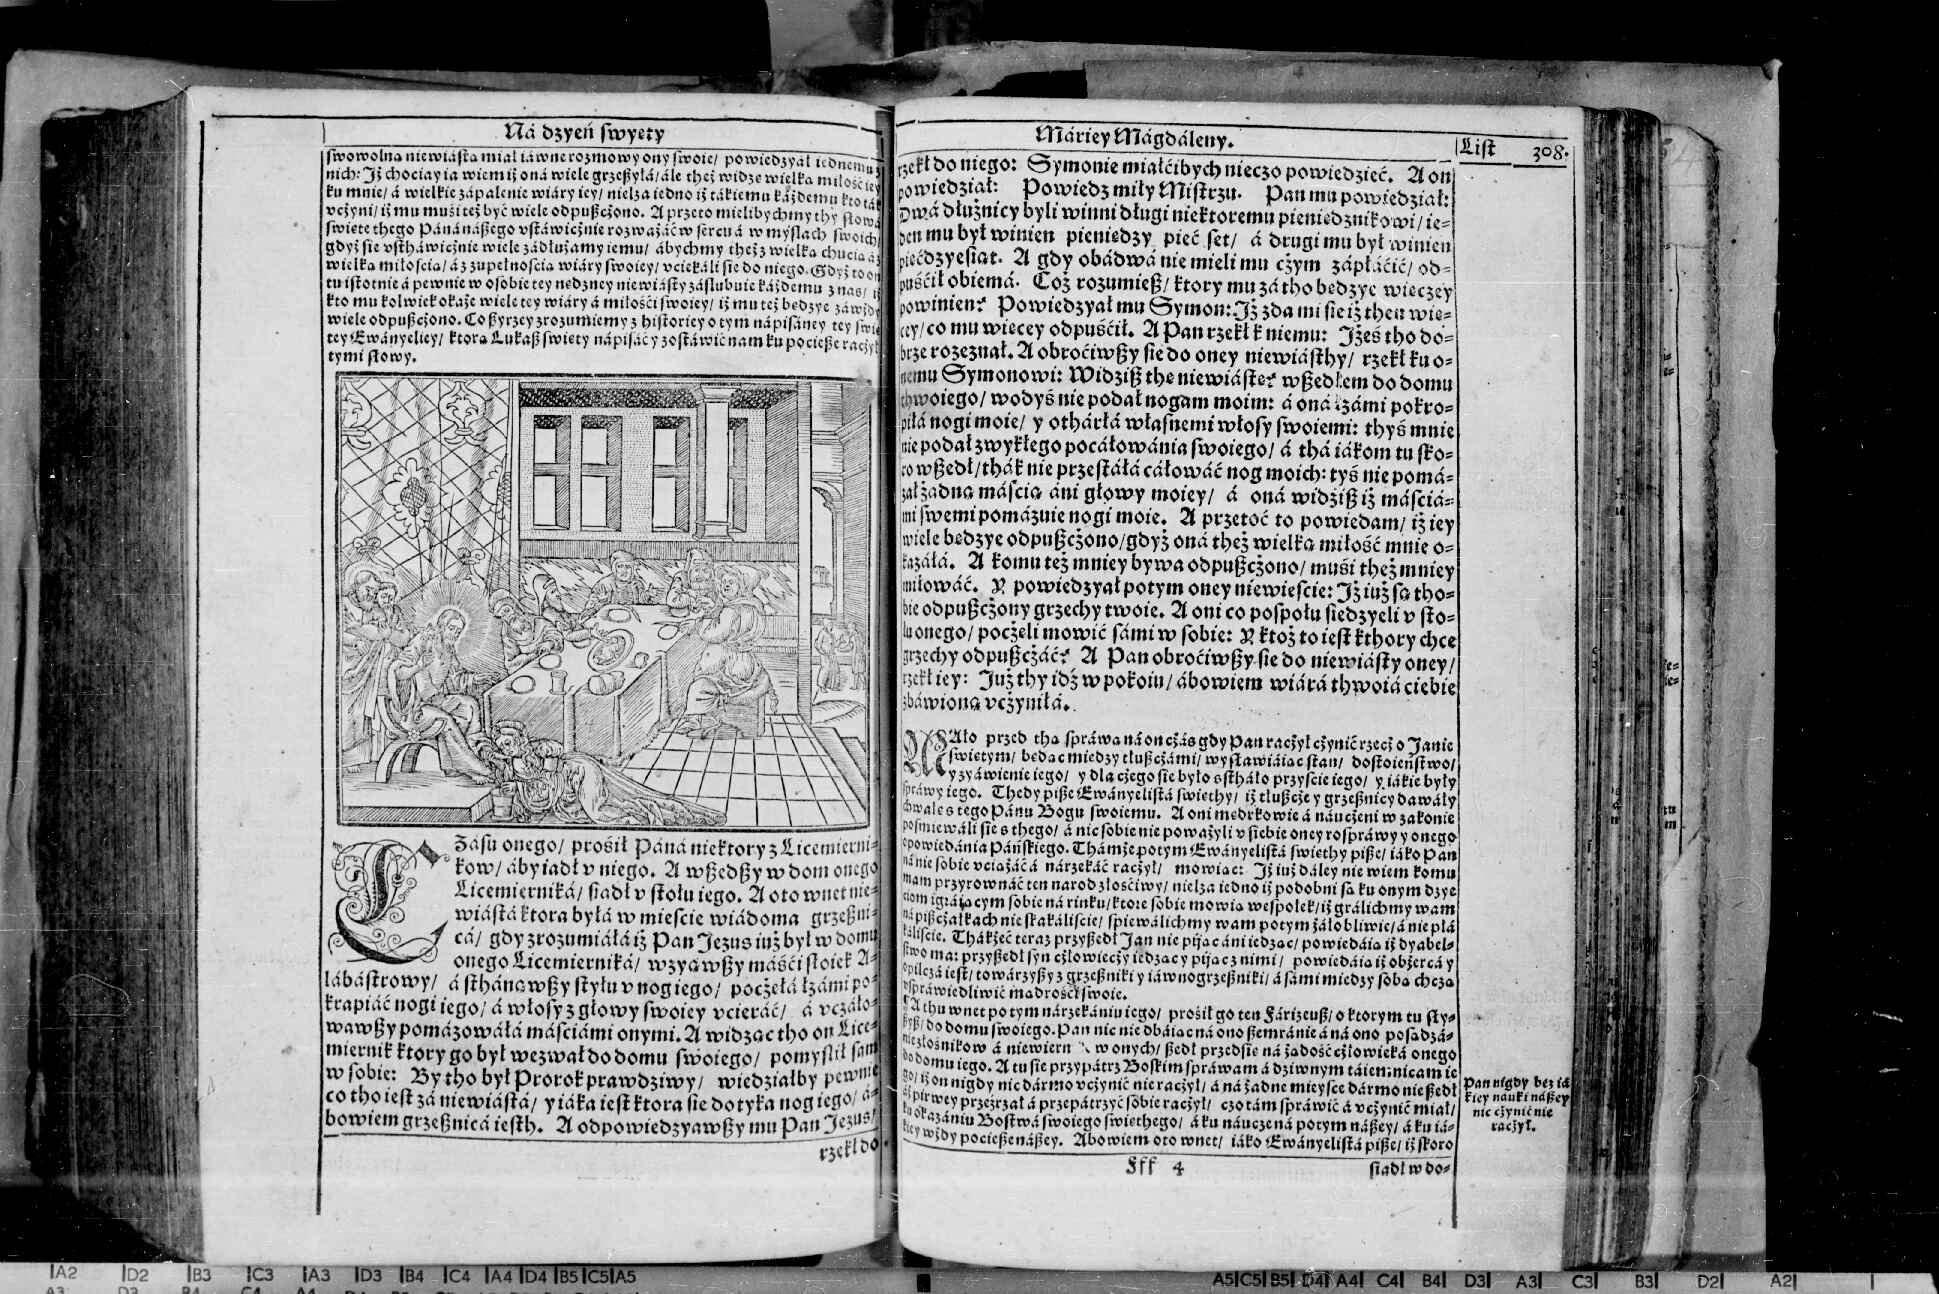 Ná dzyeń swyety
swowolna niewiásta miał iáwne rozmowy ony swoie/ powiedzyał iednemu z
nich: Jż chociay ia wiem iż oná wiele grzeßyłá/ ále theż widze wielka miłość iey
ku mnie/ á wielkie zápalenie wiáry iey/ nielza iedno iż tákiemu káżdemu kto ták
vcżyni/ iż mu muśi też być wiele odpußcżono. A przeto mielibychmy thy słowá
swiete thego Páná nášego vstáwicżnie rozważáć w sercu á w myslach swoich/
gdyż sie vstháwicżnie wiele zádłużamy iemu/ ábychmy theż z wielka chucia áż
wielka miłoscia/ áz zupełnoscia wiáry swoiey/ vciekáli sie do niego. Gdyż to on
tu istotnie á pewnie w osobie tey nedzney niewiásty záslubuie káżdemu z nas/ iż
kto mu kolwiek okaże wiele tey wiáry á miłośći swoiey/ iż mu też bedzye záwżdy
wiele odpußcżono. Co ßyrzey zrozumiemy z historiey o tym nápisáney tey swie
tey Ewányeliey/ ktora Lukaß swiety nápisáć y zostáwić nam ku pociesze racżył
tymi słowy.
Czásu onego/ prosił Páná niektory z Licemierni-
kow/ áby iadł v niego. A wßedßy w dom onego
Licemierniká/ siadł v stołu iego. A oto wnet nie-
wiástá ktora byłá w miescie wiádoma grzeßni-
cá/ gdy zrozumiáłá iż Pan Jezus iuż był w domu
onego Licemierniká/ wzyąwßy máśći słoiek A-
lábástrowy/ á sthánąwßy styłu v nog iego/ pocżęłá łzámi po-
krapiáć nogi iego/ á włosy z głowy swoiey vcieráć/ á vcáło-
wawßy pomázowáłá máściámi onymi. A widząc tho on Lice-
miernik ktory go był wezwał do domu swoiego/ pomyslił sam
w sobie: By tho był Prorok prawdziwy/ wiedziałby pewnie
co tho iest zá niewiástá/ y iáka iest ktora sie dotyka nog iego/ á-
bowiem grzeßnicá iesth. A odpowiedzyawßy mu Pan Jezus/
rzekł do
Máriey Mágdáleny.
List 308.
rzekł do niego: Symonie miałćibych nieczo powiedzieć. A on
powiedział: Powiedz miły Mistrzu. Pan mu powiedział:
Dwá dłużnicy byli winni długi niektoremu pieniedznikowi/ ie-
den mu był winien pieniedzy pieć set/ á drugi mu był winien
piećdzyesiąt. A gdy obádwá nie mieli mu cżym zápłáćić/ od-
puśćił obiemá. Coż rozumieß/ ktory mu zá tho bedzye wieczey
powinien? Powiedzyał mu Symon: Jż zda mi sie iż then wie-
cey/ co mu wiecey odpuśćił. A Pan rzekł k niemu: Jżeś tho do-
brze rozeznał. A obroćiwßy sie do oney niewiásthy/ rzekł ku o-
nemu Symonowi: Widziß the niewiáste? wßedłem do domu
thwoiego/ wodyś nie podał nogam moim: á oná łzámi pokro-
piłá nogi moie/ y othárłá własnemi włosy swoiemi: thyś mnie
nie podał zwykłego pocáłowánia swoiego/ á thá iákom tu sko-
ro wßedł/ thák nie przestáłá cáłowáć nog moich: tyś nie pomá-
zał żadną máscią áni głowy moiey/ á oná widziß iż máściá-
mi swemi pomázuie nogi moie. A przetoć to powiedam/ iż iey
wiele bedzye odpußcżono/ gdyż oná theż wielką miłość mnie o-
kazáłá. A komu też mniey bywa odpußcżono/ muśi theż mniey
miłowáć. Y powiedzyał potym oney niewieście: Jż iuż są tho-
bie odpußcżony grzechy twoie. A oni co pospołu siedzyeli v sto-
łu onego/ pocżeli mowić sámi w sobie: Y ktoż to iest kthory chce
grzechy odpußcżáć? A Pan obroćiwßy sie do niewiásty oney/
rzekł iey: Już thy idź w pokoiu/ ábowiem wiárá thwoiá ciebie
zbáwioną vcżyniłá.
MAło przed thą spráwą ná on cżás gdy Pan racżył cżynić rzecż o Janie
swiętym/ bedąc miedzy tłußcżámi/ wystáwiáiąc stan/ dostoieństwo/
y zyáwienie iego/ y dla cżego sie było sstháło przyście iego/ y iákie były
spráwy iego. Thedy piße Ewányelistá swiethy/ iż tłußcże y grzeßnicy dawáły
chwałe s tego Pánu Bogu swoiemu. A oni medrkowie á náucżeni w zakonie
pośmiewáli sie s thego/ á nic sobie nie poważyli v siebie oney rospráwy y onego
opowiedánia Páńskiego. Thámże potym Ewányelistá swiethy piße/ iáko Pan
ná nie sobie vciążáćá nárzekáć racżył/ mowiąc: Jż iuż dáley nie wiem komu
mam przyrownáć ten narod złośćiwy/ nielza iedno iż podobni są ku onym dzye
ciom igráiącym sobie ná rinku/ ktore sobie mowią wespołek/ iż grálichmy wam
ná pißcżałkach nie skakáliście/ śpiewálichmy wam potym żáłobliwie/ á nie płá
káliście. Thákżeć teraz przyßedł Jan nie pijąc áni iedząc/ powiedáią iż dyabel-
stwo ma: przyßedł syn cżłowiecży iedzący pijąc z nimi/ powiedáią iż obżercá y
opilczá iest/ towárzyßy z grzeßniki y iáwnogrzeßniki/ á sámi miedzy sobą chczą
vspráwiedliwić mądrość swoie.
A thu wnet po tym nárzekániu iego/ prosił go ten Fárizeuß/ o ktorym tu sły-
ßyß/ do domu swoiego. Pan nic nie dbáiąc ná ono ßemránie á ná ono posadzá-
nie złośnikow á niewiern w onych/ ßedł przedsie ná żádość cżłowieká onego
do domu iego. A tu sie przypátrz Boskim spráwam á dziwnym táiemnicam ie
go/ iż on nigdy nic dármo vcżynić nie racżył/ á ná żadne mieysce dármo nie ßedł
áż pirwey przeżrzał á przepátrzyć sobie racżył/ czo tám spráwić á vcżynić miał/
ku okazániu Bostwá swoiego swiethego/ á ku náucże ná potym náßey/ á ku iá-
kiey wżdy pocieße náßey. Abowiem oto wnet/ iáko Ewányelistá piße/ iż skoro
Pan nigdy bez iá
kiey náuki náßey
nic cżynić nie
racżył.
Fff 4
siadł w do-
A2 D2 B3 C3 A3 D3 B4 C4 A4 D4 B5 C5 A5
A5 C5 B5 D4 A4 C4 B4 D3 A3 C3 B3 D2 A2